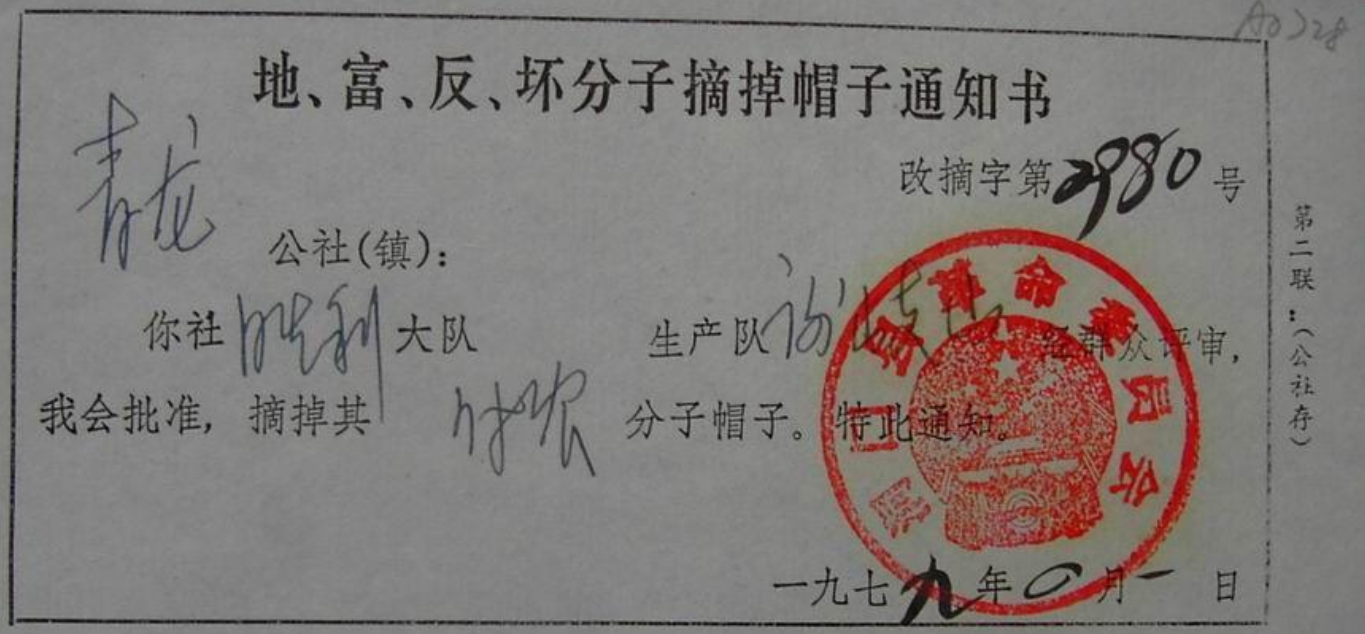 地、富、反、坏分子摘掉帽子通知书
改摘字第2980号
青龙公社(镇):
你社胜利大队 生产队 经群众评审,
我会批准, 摘掉其付农分子帽子。特此通知。
门县革命委员会
一九七九年四月一日
第二联:(公社存)